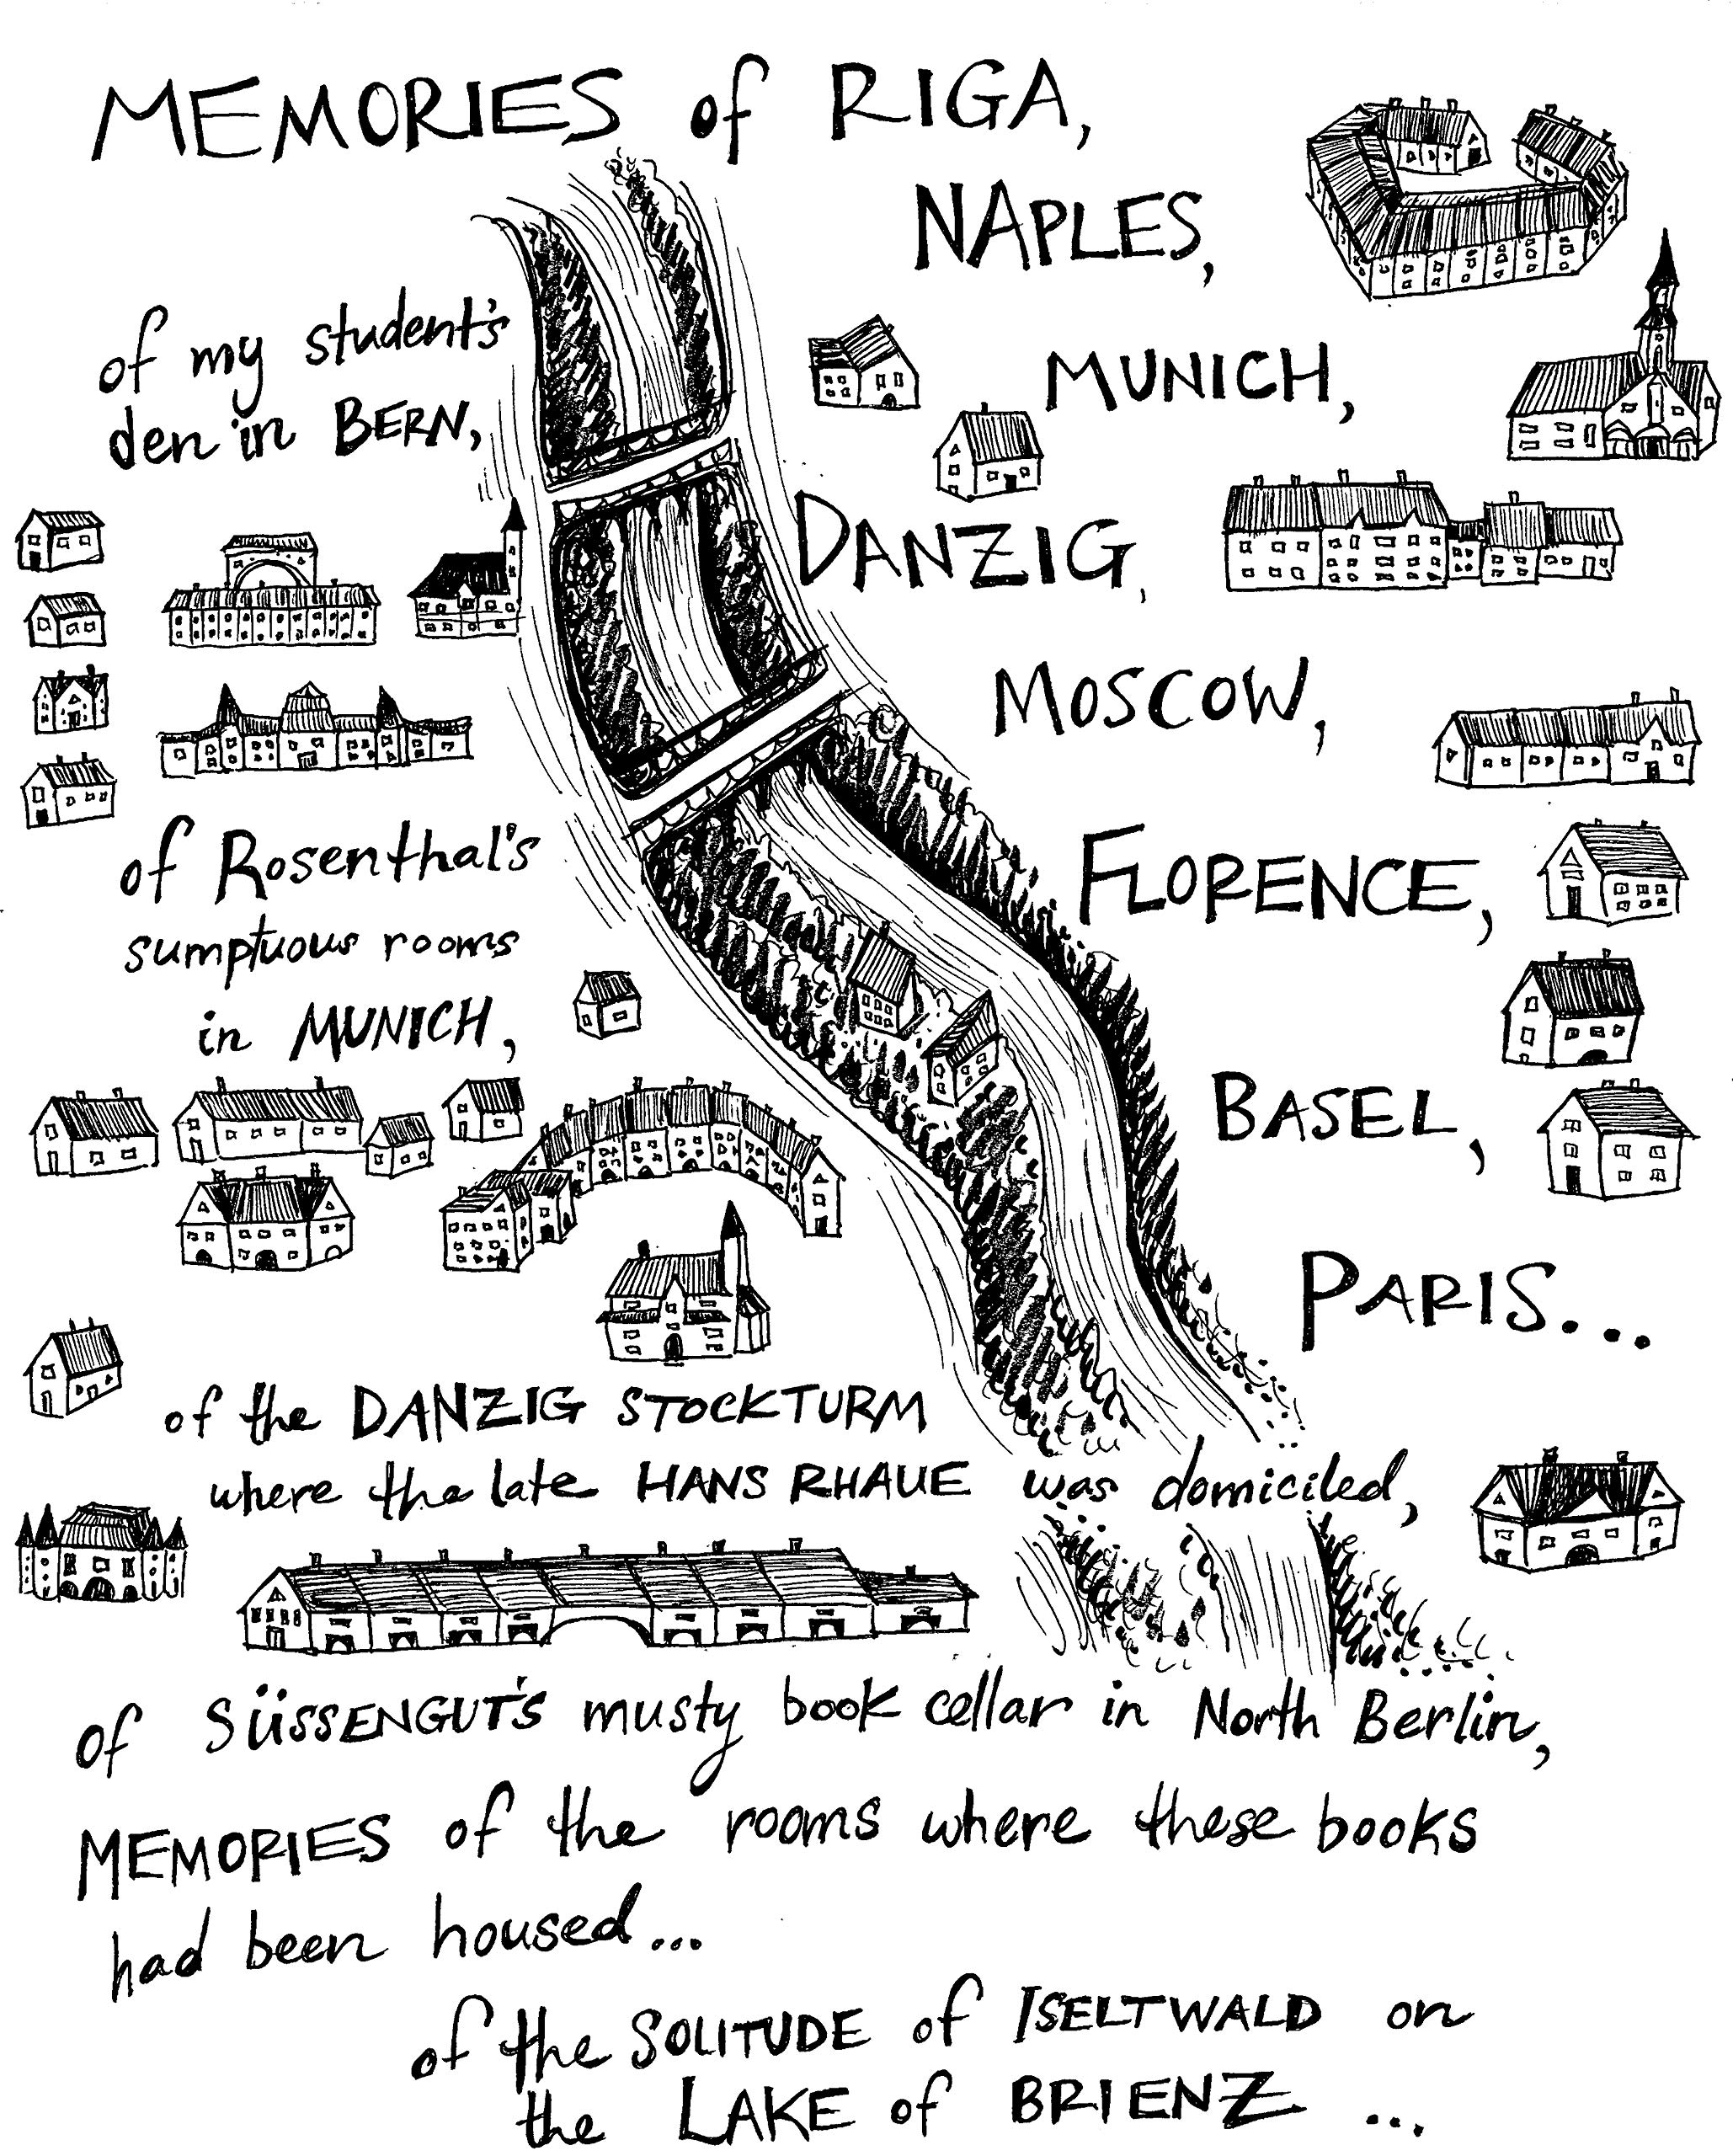 MEMORIES of RIGA,
NAPLES,
MUNICH,
DANZIG,
MOSCOW,
FLORENCE,
BASEL,
PARIS...
of my student's
den in BERN,
of Rosenthal's
sumptuous rooms
in MUNICH,
of the DANZIG STOCKTURM
where the late HANS RHAUE was domiciled,
of SÜSSENGUT'S musty book cellar in North Berlin,
MEMORIES of the rooms where these books
had been housed...
of the SOLITUDE of ISELTWALD on
the LAKE of BRIENZ ...